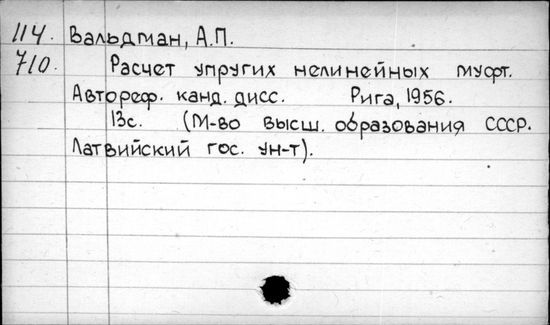 114. Вальдман, А.П.
710. Расчет упругих нелинейных муфт.
Автореф. канд. дисс. Рига, 1956.
13с. (М-во высш. образования СССР.
Латвийский гос. ун-т).